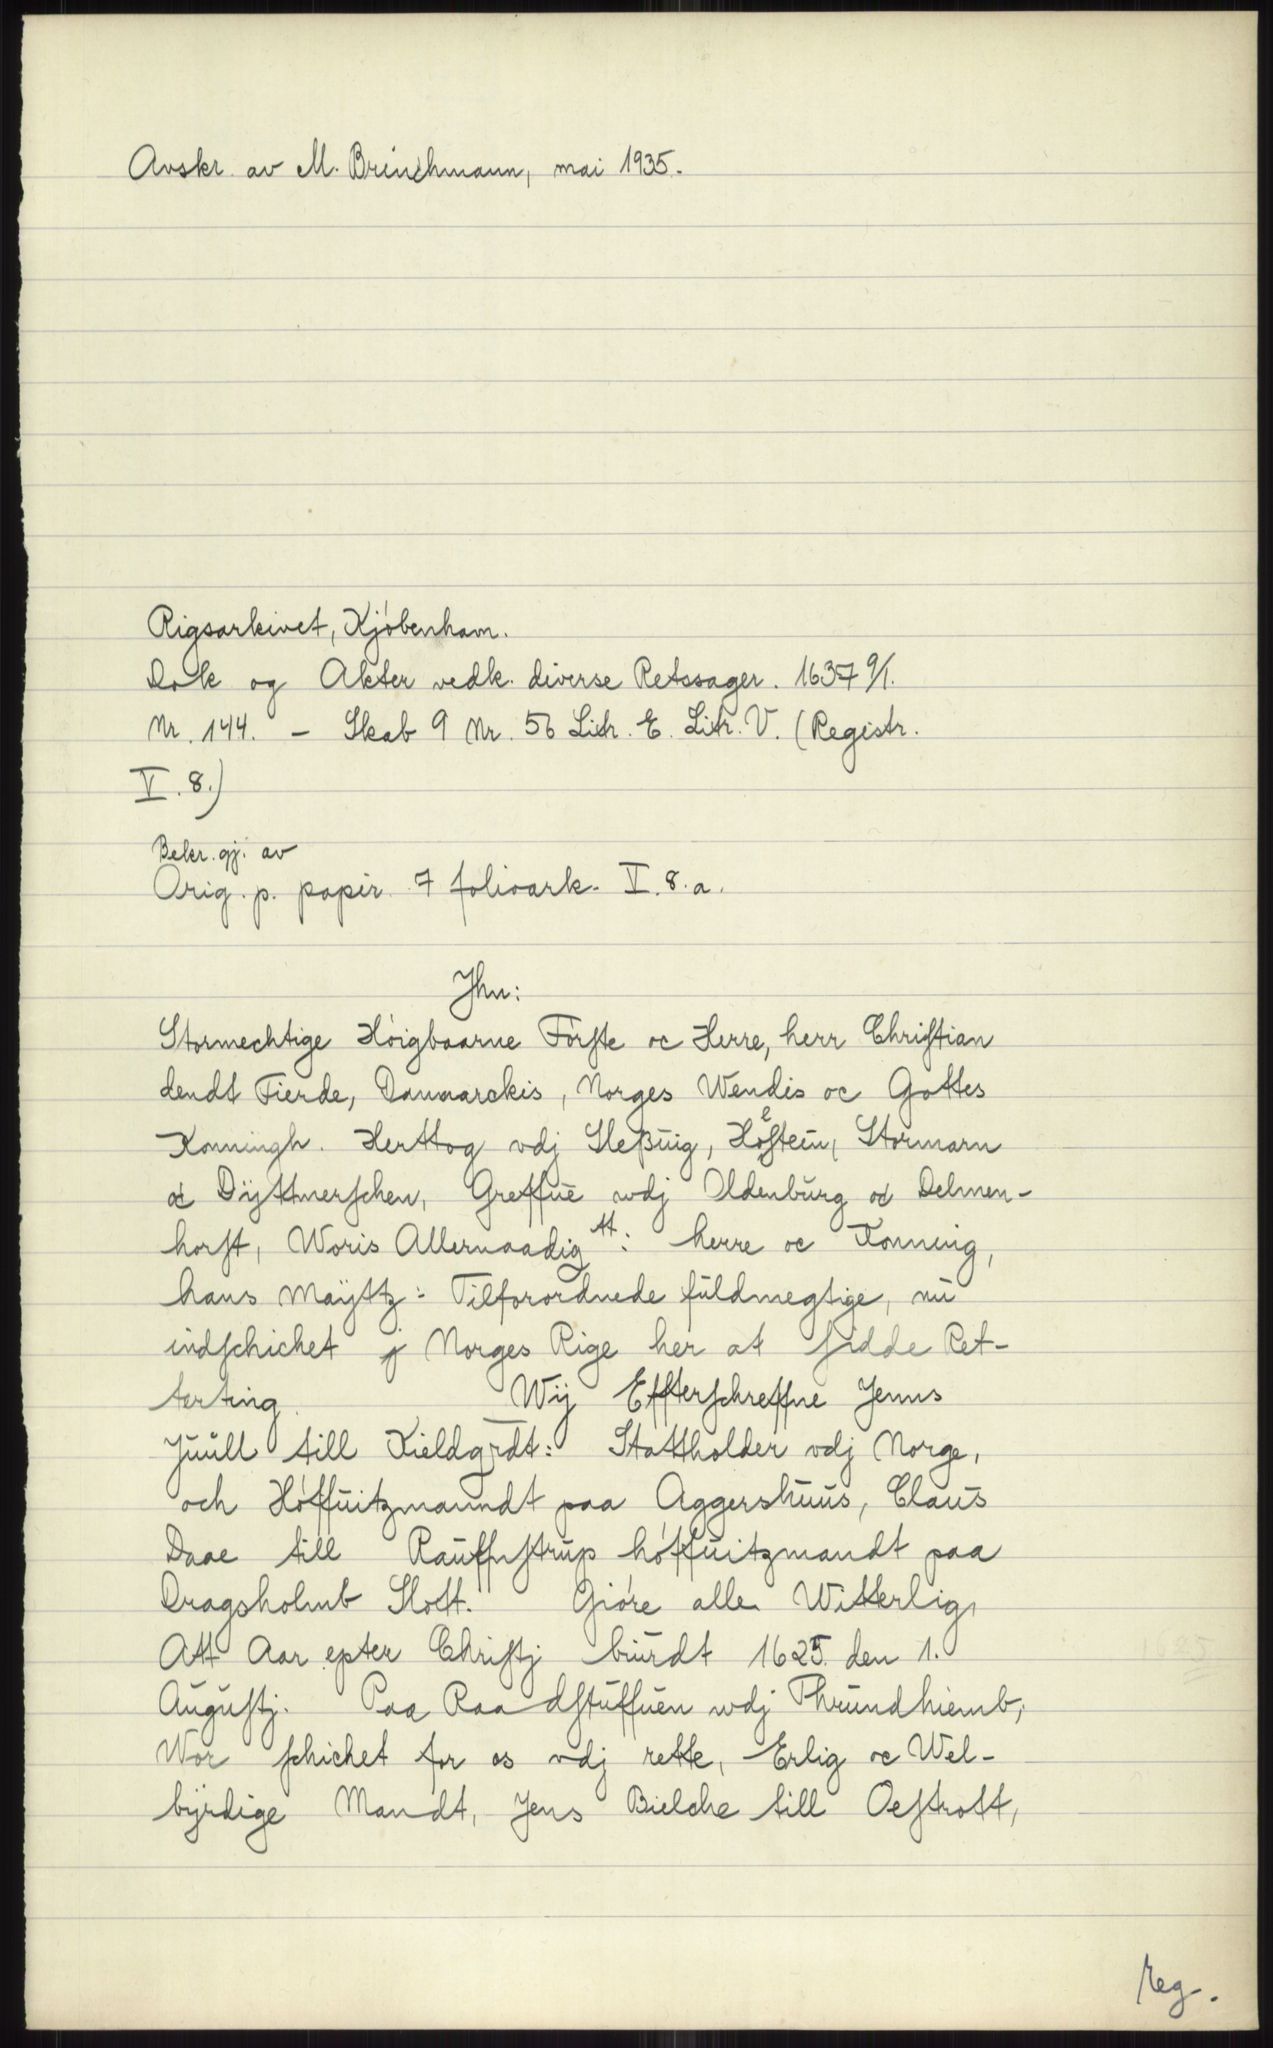 Avskr. av M. Brinchmann, mai 1935.
Rigsarkivet, Kjöbenhavn.
Dok og Akter vedk. diverse Retssager. 1637 9/1.
Nr. 144. – Skab 9 Nr. 56 Litr. E. Litr. V. (Registr.
V. 8.)
Bekr. gj. av
Orig. p. papir 7 folioark. V. 8. a.
Jhu:
Stormechtige Höigbaarne Förſte oc Herre, herr Chriſtian
dendt Fierde, Danmarckis, Norges Wendis oc Gottes
Konningh. Herttog vdj Sleßuig, Holſtein, Stormarn
oc Dÿttmerſchen, Greffue wdj Oldenburg oc Delmen-
horſt, Woris Allernaadig tt: herre oc Konning,
hans Maÿttz: Tilforordnede fuldmegtige, nu
indſchichet j Norges Rige her at ſidde Ret-
terting. Wij Effterſchreffne Jenns
Juull till Kieldgrdt: Stattholder vdj Norge,
och Höffuitzmanndt paa Aggershuus, Claus
Daae till Rauffnſtrup höffuitzmandt paa
Dragsholmb Slott. Giöre alle Witterlig,
Att Aar epter Chriſtj buurdt 1625. den 1.
Auguſtj. Paa Raadſtuffuen wdj Thrundhiemb,
Wor ſchichet for os vdj rette, Erlig oc Wel-
bÿrdige Mandt, Jens Bielche till Oeſtrott,
625
reg.